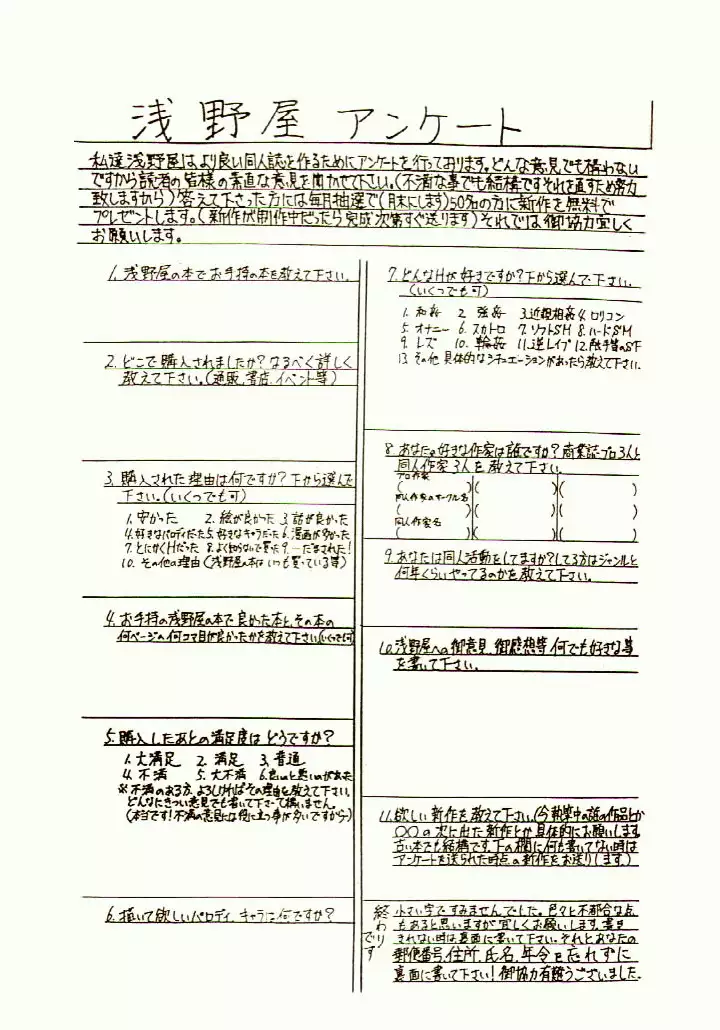 浅野屋 アンケート
私達浅野屋はより良い同人誌を作るためにアンケートを行っております。どんな意見でも構わない
ですから読者の皆様の素直な意見を聞かせて下さい。(不満な事でも結構ですそれを直すため努力
致しますから)答えて下さった方には毎月抽選で(月末にします)50名の方に新作を無料で
プレゼントします。(新作が制作中だったら完成次第すぐ送ります)それでは御協力宜しく
お願いします。
1. 浅野屋の本でお手持の本を教えて下さい。
2. どこで購入されましたか?なるべく詳しく
教えて下さい。(通販、書店、イベント等)
3. 購入された理由は何ですか?下から選んで
下さい。(いくつでも可)
1. 安かった 2. 絵が良かった 3. 話が良かった
4. 好きなパロディだった 5. 好きなキャラだった 6. 漫画が多かった
7. とにかくHだった 8. よく知らないで買った 9. 一だまされた!
10. その他の理由(浅野屋の本はいつも買っている等)
4. お手持の浅野屋の本で良かった本と、その本の
何ページの何コマ目が良かったかを教えて下さい(いくつでも可)
5. 購入したあとの満足度はどうですか?
1. 大満足 2. 満足 3. 普通
4. 不満 5. 大不満 6. 良いのと悪いのがあった
※不満のある方、よろしければその理由を教えて下さい。
どんなにきつい意見でも書いて下さって構いません。
(本当です!不満の意見には役に立つ事が多いですから)
6. 描いて欲しいパロディ、キャラは何ですか?
7. どんなHが好きですか?下から選んで下さい。
(いくつでも可)
1. 和姦 2. 強姦 3. 近親相姦 4. ロリコン
5. オナニー 6. スカトロ 7. ソフトSM 8. ハードSM
9. レズ 10. 輪姦 11. 逆レイプ 12. 触手等のSF
13. その他 具体的なシチュエーションがあったら教えて下さい。
8. あなたの好きな作家は誰ですか?商業誌・プロ3人と
同人作家3人を教えて下さい。
プロ作家
( )( )( )
同人作家のサークル名
( )( )( )
同人作家名
( )( )( )
9. あなたは同人活動をしてますか?してる方はジャンルと
何年くらいやってるのかを教えて下さい。
10. 浅野屋への御意見、御感想等、何でも好きな事
を書いて下さい。
11. 欲しい新作を教えて下さい。(今執筆中の話の作品とか
〇〇の次に出た新作とか具体的にお願いします
古い本でも結構です。下の欄に何も書いてない時は
アンケートを送られた時点の新作をお送りします。)
終わりです
小さい字ですみませんでした。色々と不都合な点
もあると思いますが宜しくお願いします。書き
きれない時は裏面に書いて下さい。それとあなたの
郵便番号、住所、氏名、年令を忘れずに
裏面に書いて下さい!御協力有難うございました。